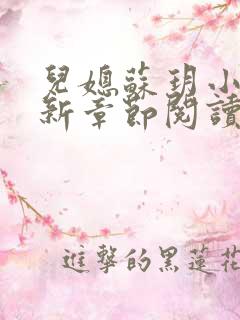 兒媳蘇玥小
新章節閱讀
進擊的黑蓮花